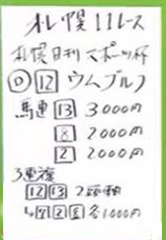 札幌11レース
札幌日刊スポーツ杯
◎ 12 ウムブルフ
馬連 13 3000円
8 2000円
2 2000円
3連複
12 13 2頭軸
7 2 8 各1000円